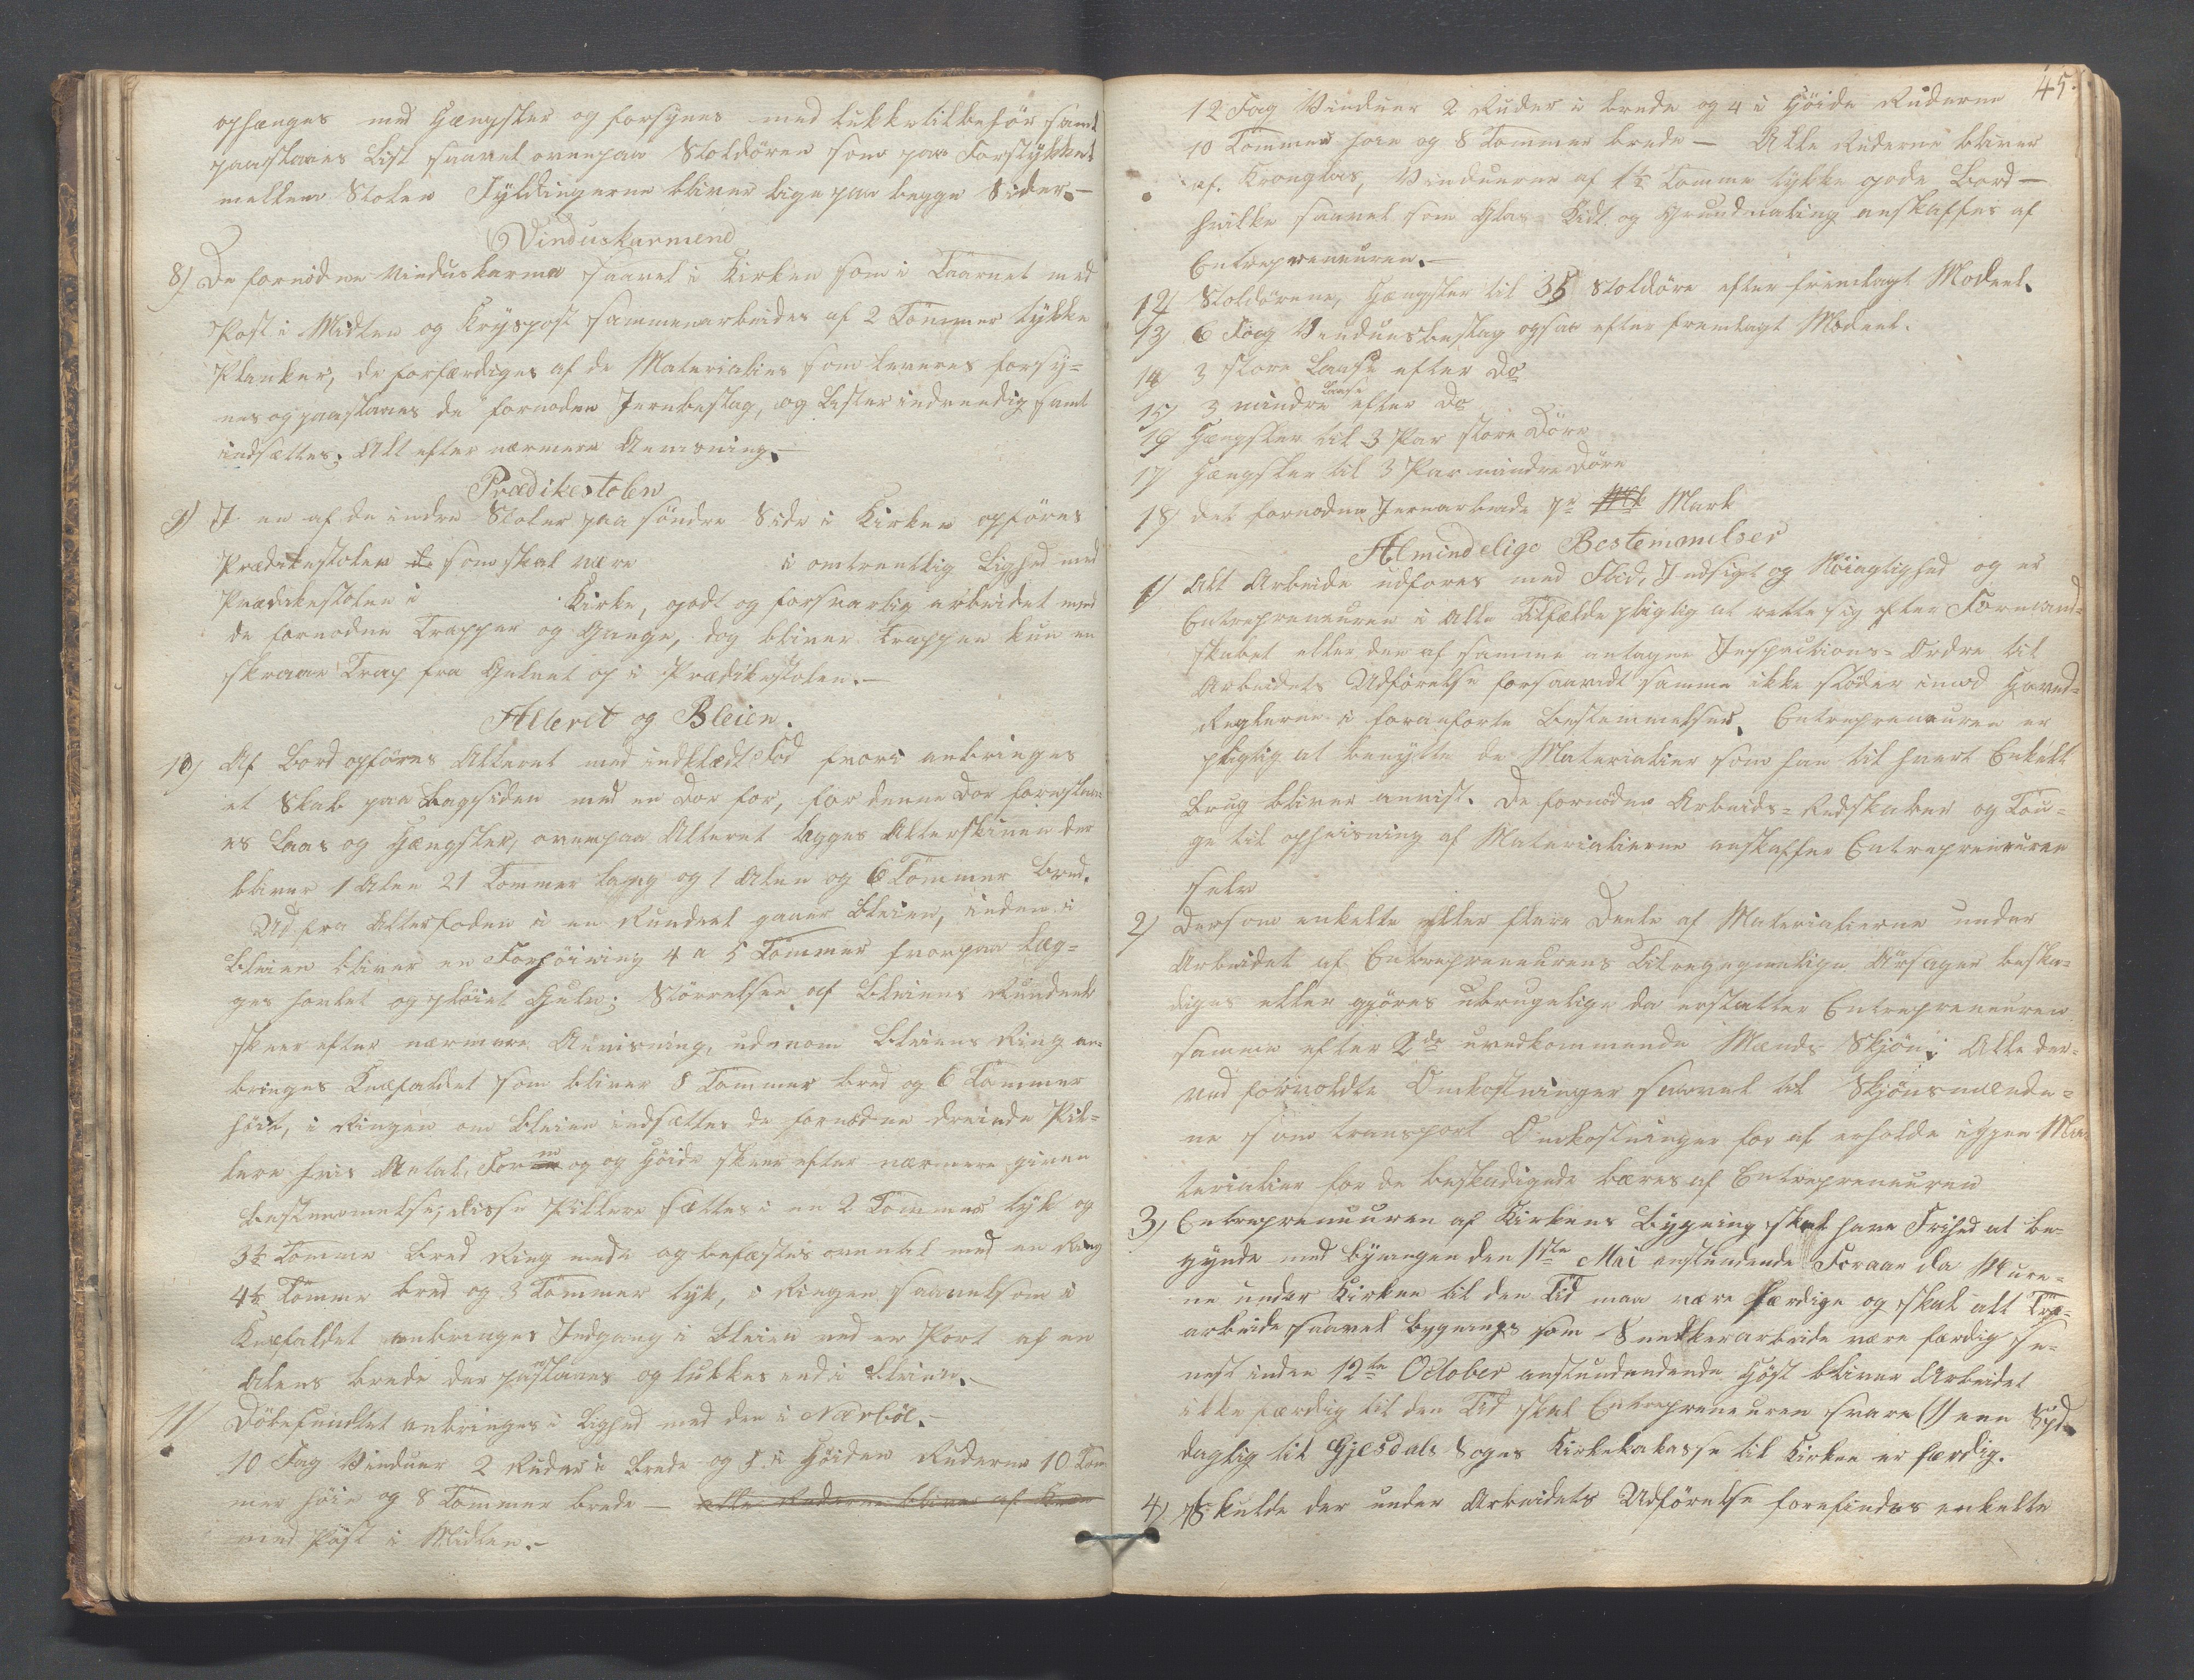 ophænges med Hængsler og forsynes med Lukketilbehör samt
paaslaaes List saavel ovenpaa Stoldören som paa Forstykket
mellem Stolen Fyldingerne bliver lige paa begge Sider.-
Vinduskarmene
8) De fornödne Vinduskarme saavel i Kirken som i Taarnet med
Post i Midten og Kryspost sammenarbeides af 2 Tommer tykke
Planker, de forfærdiges af de Materialier som leveres forsy=
nes og paaslaaes de fornödne Jernbeslag, og Lister indvendig samt
indsættes; Alt efter nærmere Anvisning.-
Prædikestolen
9) I en af de indre Stoler paa söndre Side i Kirken opföres
Prædikestolen som skal være i omtrentlig Lighed med
Prædikestolen i Kirke, godt og forsvarlig arbeidet med
de fornödne Trapper og Gange, dog bliver Trappen kun en
skraae Trap fra Gulvet op i Prædikestolen.-
Alteret og Bleien.
10) Af Bord opföres Alteret med indklædt Fod hvori anbringes
et Skab paa Bagsiden med en Dör for, for denne Dör foreslaa-
es Laas og Hængsler, ovenpaa Alteret lægges Alterskiven der
bliver 1 Alen 21 Tommer lang og 1 Alen og 6 Tommer bred.
Ud fra Alterfoden i en Rundeel gaaer Bleien, inden i
Bleien bliver en Forhöining 4 a 5 Tommer hvorpaa læg=
ges hövlet og plöiet Gulv; Störrelsen af Bleiens Rundeel
skeer efter nærmere Anvisning, udenom Bleiens Ring an=
bringes Knæfaldet som bliver 8 Tommer bred og 6 Tommer
höit, i Ringen om Bleien indsættes de fornödne dreiede Pil=
lere hvis Antal, Form og og Höide skeer efter nærmere given
bestemmelse; disse Pillere sættes i en 2 Tommer tyk og
3½ Tomme bred Ring nede og befæstes oventil med en Ring
4½ Tomme bred og 3 Tommer tyk, i Ringen saavelsom i
Knæfaldet anbringes Indgang i Bleien ved en Port af en
Alens brede der paaslaaes og lukkes ind i Bleien.-
11) Döbefundtet anbringes i Lighed med den i Nærböe.-
10 Fag Vinduer 2 Ruder i Brede og 5 i Höiden Ruderne 10 Tom
mer höie og 8 Tommer brede - alle Ruderne bliver af Kron
med Post i Midten.-
45.
12 Fag Vinduer 2 Ruder i brede og 4 i Höide Ruderne
10 Tommer höie og 8 Tommer brede - Alle Ruderne bliver
af Kronglas, Vinduerne af 1½ Tomme tykke gode Bord-
hvilke saavel som Glas Kidt og Grundmaling anskaffes af
Entrepreneuren.-
12) Stoldörene, Hængsler til 35 Stoldöre efter fremlagt Modeel.
13) 6 Fag Vinduesbeslag ogsaa efter fremlagt Modeel.
14) 3 store Laase efter Do
15) 3 mindre Laase efter Do
16) Hængsler til 3 Par store Döre
17) Hængsler til 3 Par mindre Döre
18) det fornödne Jernarbeide pr Mark
Almindelige Bestemmelser
1) Alt Arbeide udföres med Flid, Indsigt og Nöiagtighed og er
Entrepreneuren i Alle Tilfælde pligtig at rette sig efter Formand=
skabet eller den af samme antagne Inspections-Ordre til
Arbeidets Udförelse forsaavidt samme ikke stöder imod Hoved=
Reglerne i foranförte bestemmelser. Entrepreneuren er
pligtig at benytte de Materialier som han til hvert Enkelt
Brug bliver anvist. De fornödne Arbeids=Redskaber og Tou=
ge til opheisning af Materialierne anskaffer Entrepreneuren
selv
2) Dersom enkelte eller flere Deele af Materialierne under
Arbeidet af Entrepreneurens Tilregnelige Aarsager beska=
diges eller gjöres ubrugelige da erstatter Entrepreneuren
samme efter 2de uvedkommende Mænds Skjön; Alle der=
ved forvoldte Omkostninger saavel til Skjönsmænde=
ne som transport Omkostninger for at erholde igjen Ma=
terialier for de beskadigede bæres af Entrepreneuren
3) Entrepreneuren af Kirkens Bygning skal have Frihed at be=
gynde med Bygningen den 1ste Mai anstundende Foraar da Mure=
ne under Kirken til den Tid maa være færdige og skal alt Træ=
arbeide saavel bygnings som Snedkerarbeide være færdig se=
nest inden 12te October anstundendende Höst bliver Arbeidet
ikke færdig til den Tid skal Entrepreneuren svare (1) een Spd.
daglig til Gjesdals Sogns Kirkekasse til Kirken er færdig.
4) Skulde der under Arbeidets Udförelse forefindes enkelte